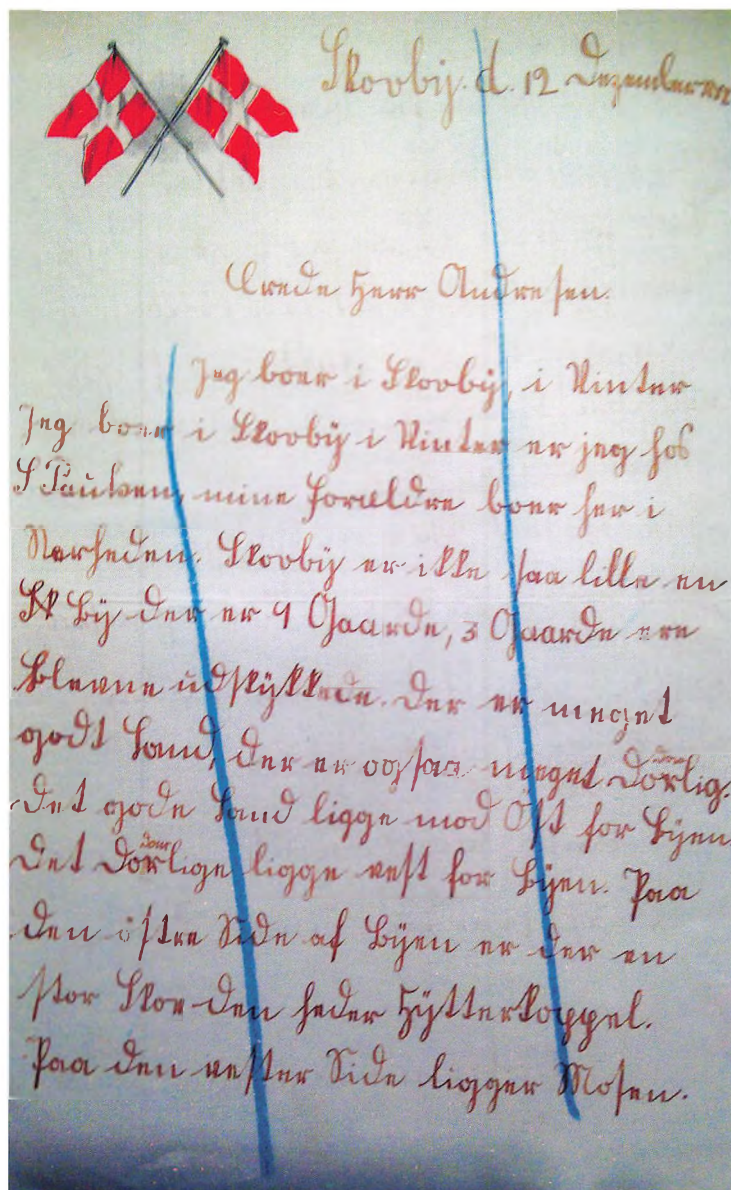 Skovbÿ. d. 12 Dezember
Ærede Herr Andresen.
Jeg boer i Skovbÿ, i Vinter
Jeg boer i Skovbÿ i Vinter er jeg hos
S Paulsen, mine Foræeldre boer her i
Nerheden. Skovbÿ er ikke saa lille en
Sk Bÿ der er 9 Gaarde, 3 Gaarde ere
blevne üdstÿkkede. Der er meget
godt Land, der er ogsaa meget Dorlig.
Det gode Land ligge mod Öst for Bÿen
Det Dorlige ligge vest for Bÿen. Paa
den östre Side af Bÿen er der en
stor Skov den heder Hÿtterkoppel.
Paa den vester Side ligger Mosen.